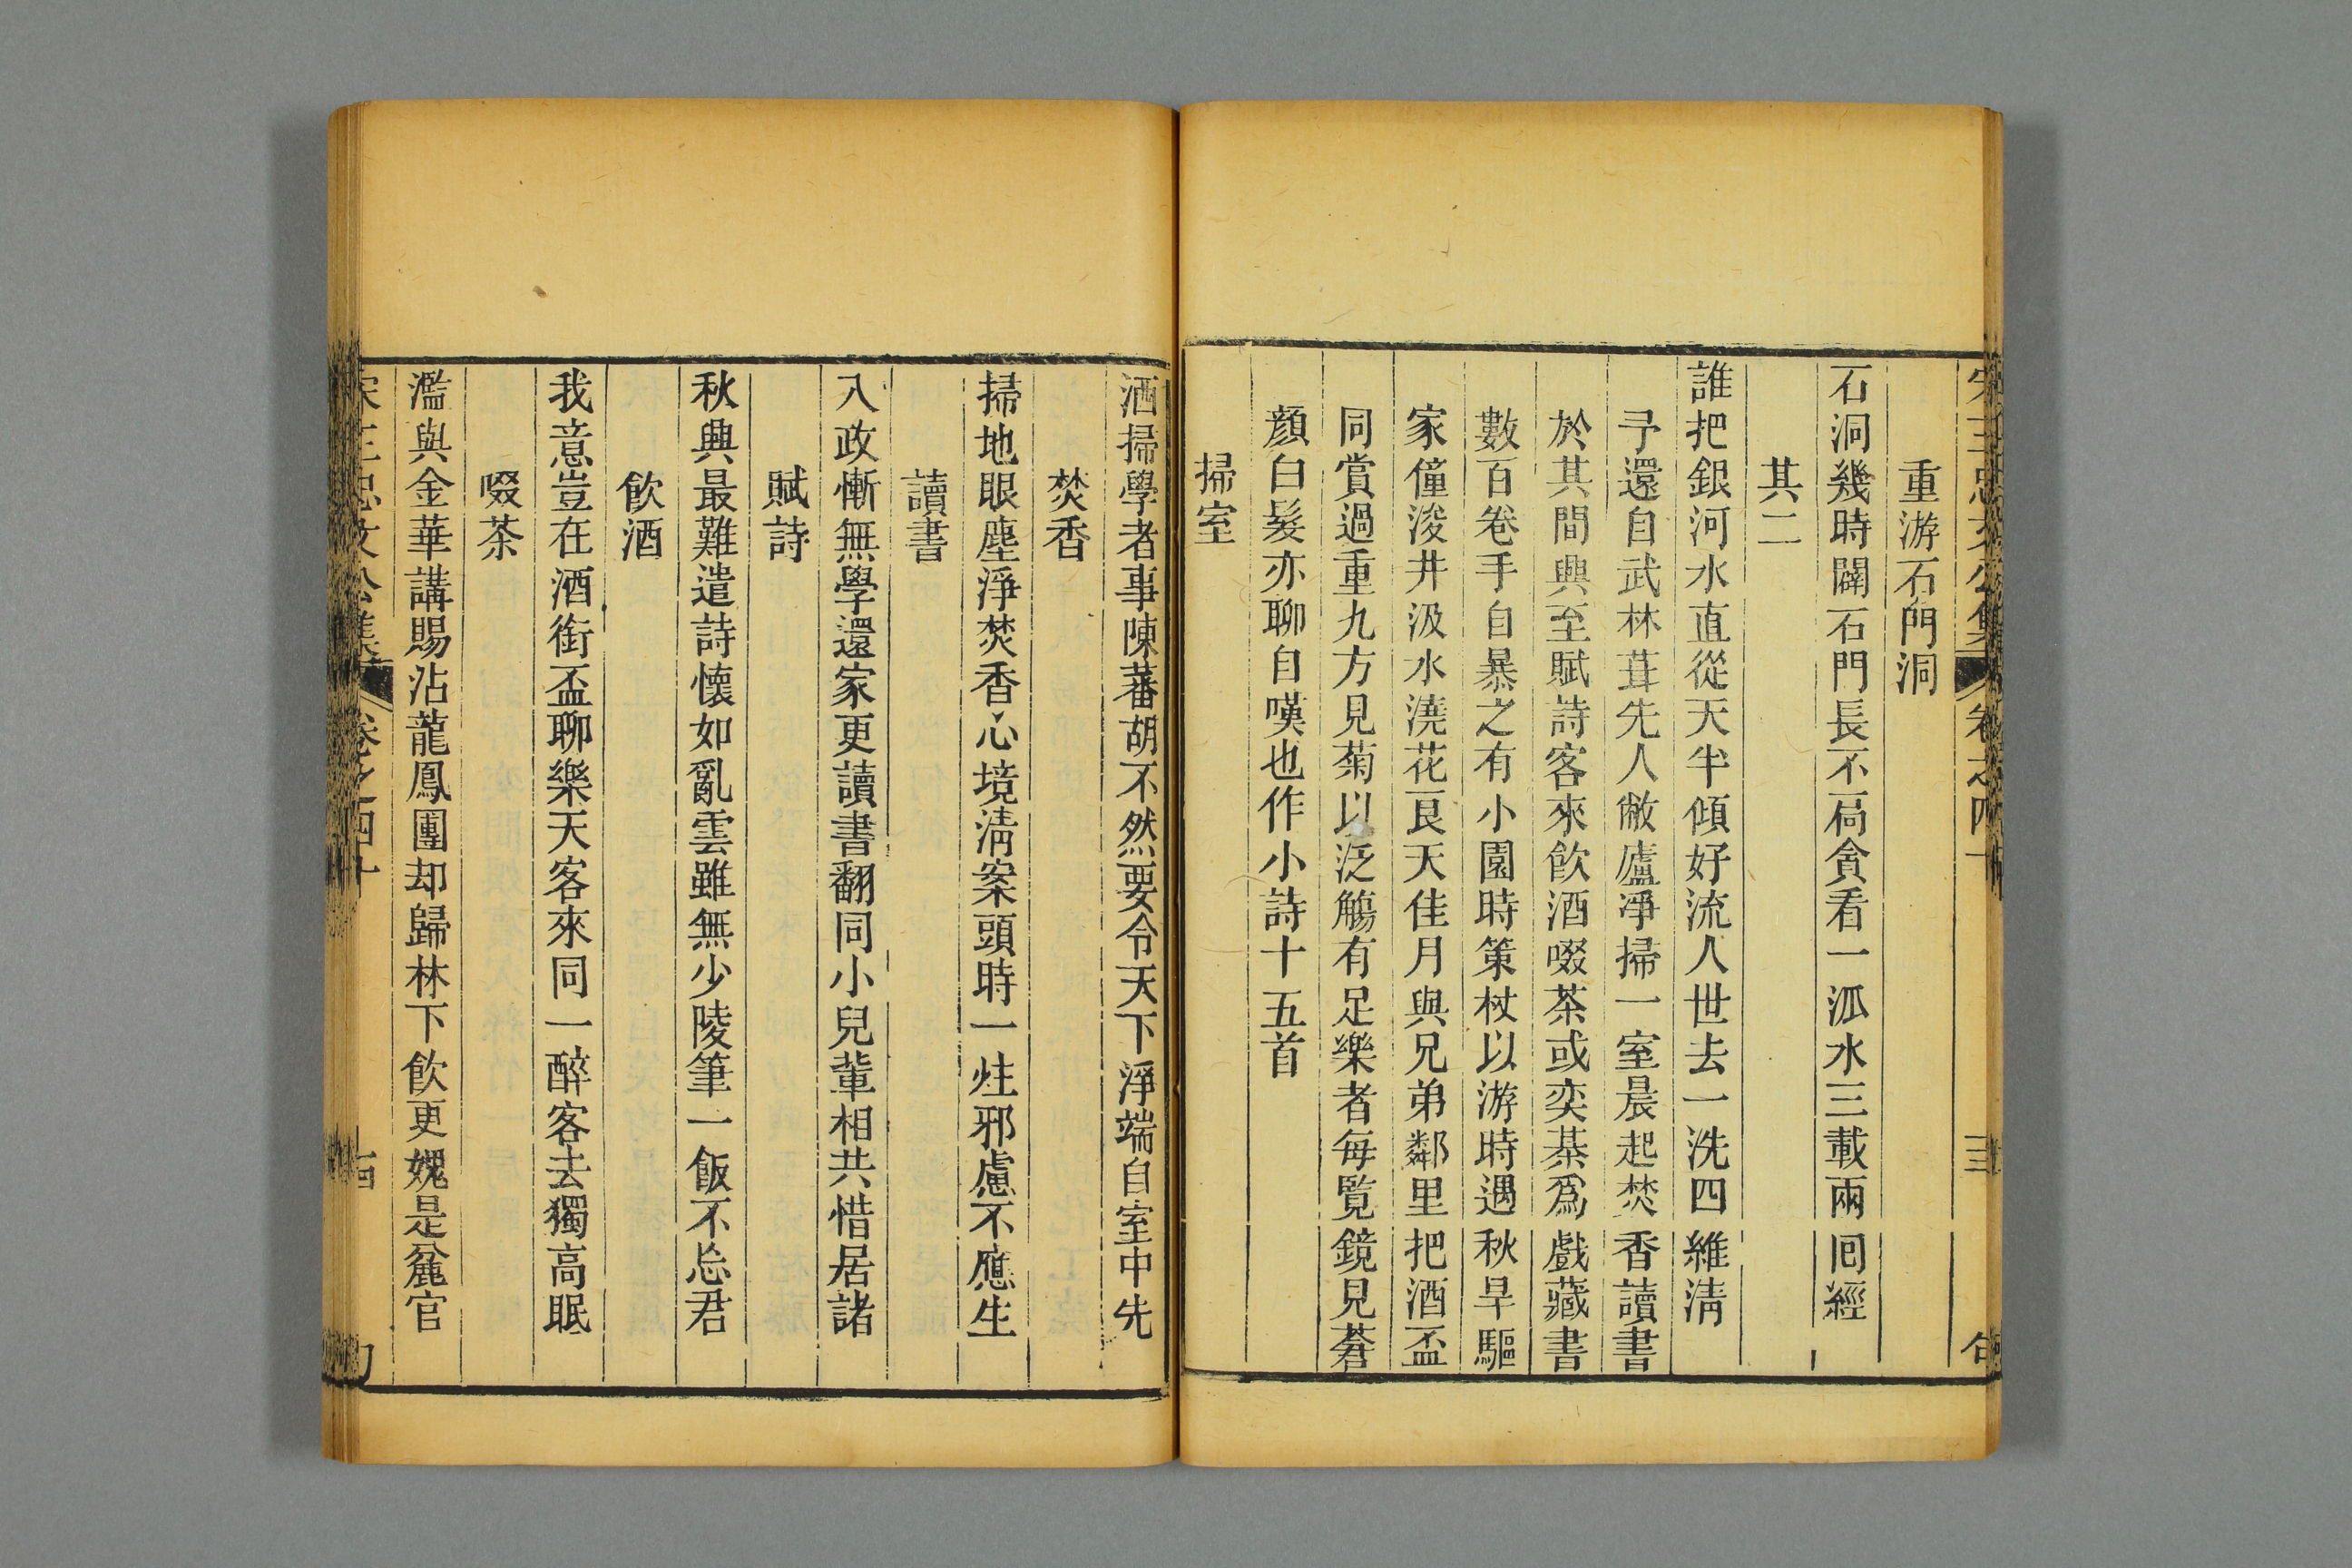 重游石門洞
石洞幾時闢石門長不扃貪看一泒水三載兩囘經
其二
誰把銀河水直從天半傾好流人世去一洗四維淸
予還自武林葺先人敝廬凈掃一室晨起焚香讀書
於其間興至賦詩客來飮酒啜茶或奕棊爲戲藏書
數百卷手自暴之有小園時策杖以游時遇秋旱驅
家僮浚井汲水澆花艮天佳月與兄弟鄰里把酒盃
同賞過重九方見菊以泛觴有足樂者每覧鏡見蒼
顏白髮亦聊自嘆也作小詩十五首
掃室
洒掃學者事陳蕃胡不然要令天下淨端自室中先
焚香
掃地眼塵淨焚香心境淸案頭時一炷邪慮不應生
讀書
入政慚無學還家更讀書翻同小兒輩相共惜居諸
賦詩
秋興最難遣詩懷如亂雲雖無少陵筆一飯不忘君
飮酒
我意豈在酒銜盃聊樂天客來同一醉客去獨高眠
啜茶
濫與金華講賜沾龍鳳團却歸林下飮更媿是麄官
卷之四十